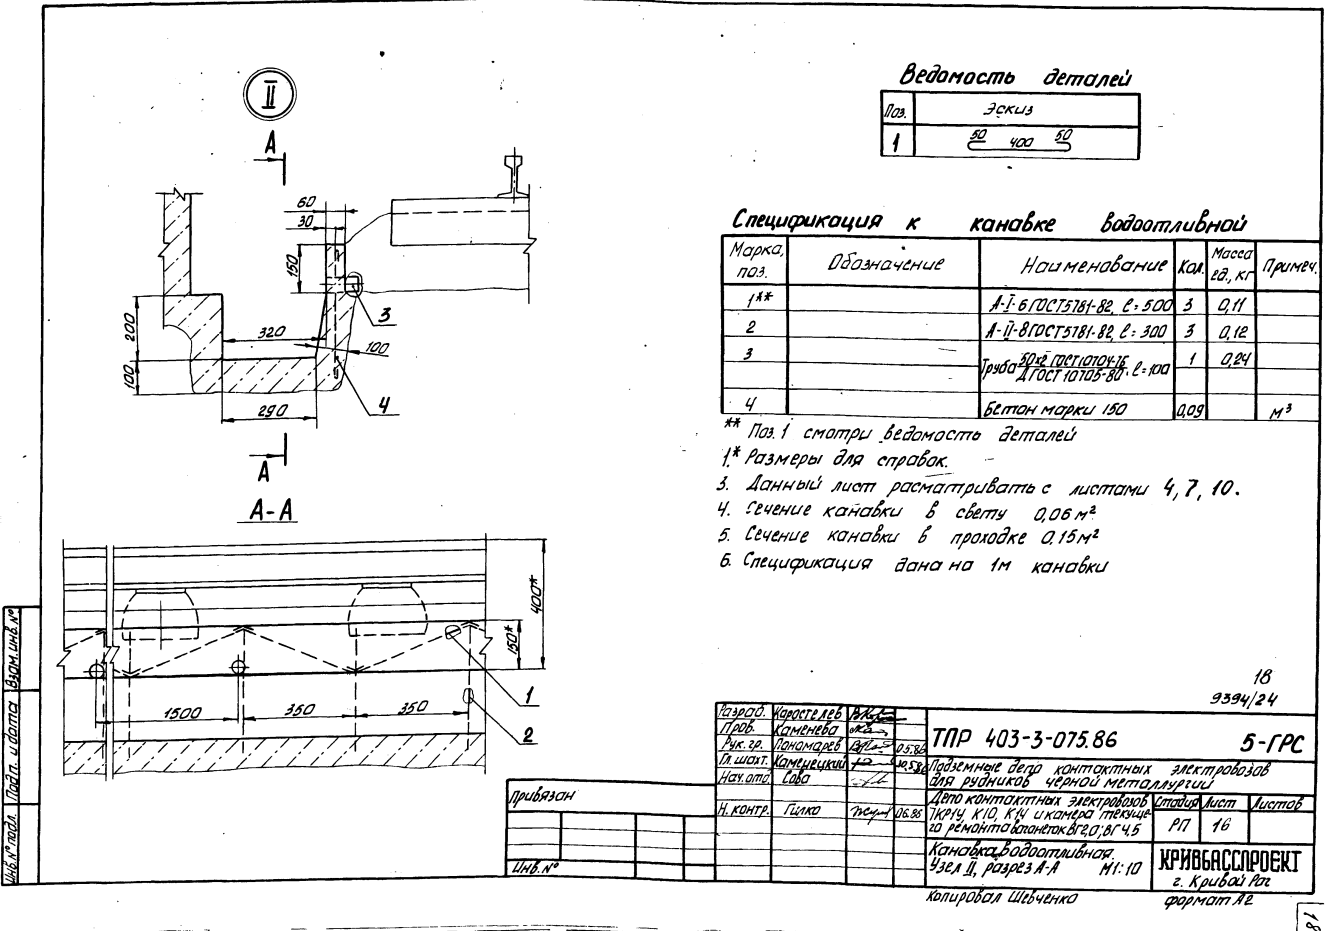 II
А
60
30
150
3
200
320
100
100
290
4
А
А-А
400*
150*
1500
350
350
1
2
Ведомость деталей
Поз.
Эскиз
1
50
400
50
Спецификация к канавке водоотливной
Марка, поз.
Обозначение
Наименование
Кол.
Масса ед., кг
Примеч.
1**
А-I-6 ГОСТ5781-82, ℓ=500
3
0,11
2
А-II-8 ГОСТ5781-82, ℓ=300
3
0,12
3
Труба 50х2 ГОСТ10704-76
Д ГОСТ 10705-80, ℓ=100
1
0,24
4
Бетон марки 150
0,09
м³
** Поз. 1 смотри ведомость деталей
1.* Размеры для справок.
3. Данный лист расматривать с листами 4, 7, 10.
4. Сечение канавки в свету 0,06 м²
5. Сечение канавки в проходке 0,15 м²
6. Спецификация дана на 1м канавки
18
9394/24
Разраб. Каростелев
Пров. Каменева
Рук. гр. Панамарев 05.86
Гл. шахт. Каменецкий 10.5.86
Нач. отд. Сова
Н. контр. Гилко 06.86
ТПР 403-3-075.86
5-ГРС
Подземные депо контактных электровозов
для рудников черной металлургии
Депо контактных электровозов
1КР14, К10, К14 и камера текуще-
го ремонта вагонеток ВГ2,0; ВГ4,5
Стадия
Лист
Листов
РП
16
Канавка водоотливная.
Узел II, разрез А-А М1:10
КРИВБАССПРОЕКТ
г. Кривой Рог
Копировал Шевченко
формат А2
Привязан
Инв. №
Взам. инв. №
Подп. и дата
Инв. № подл.
18